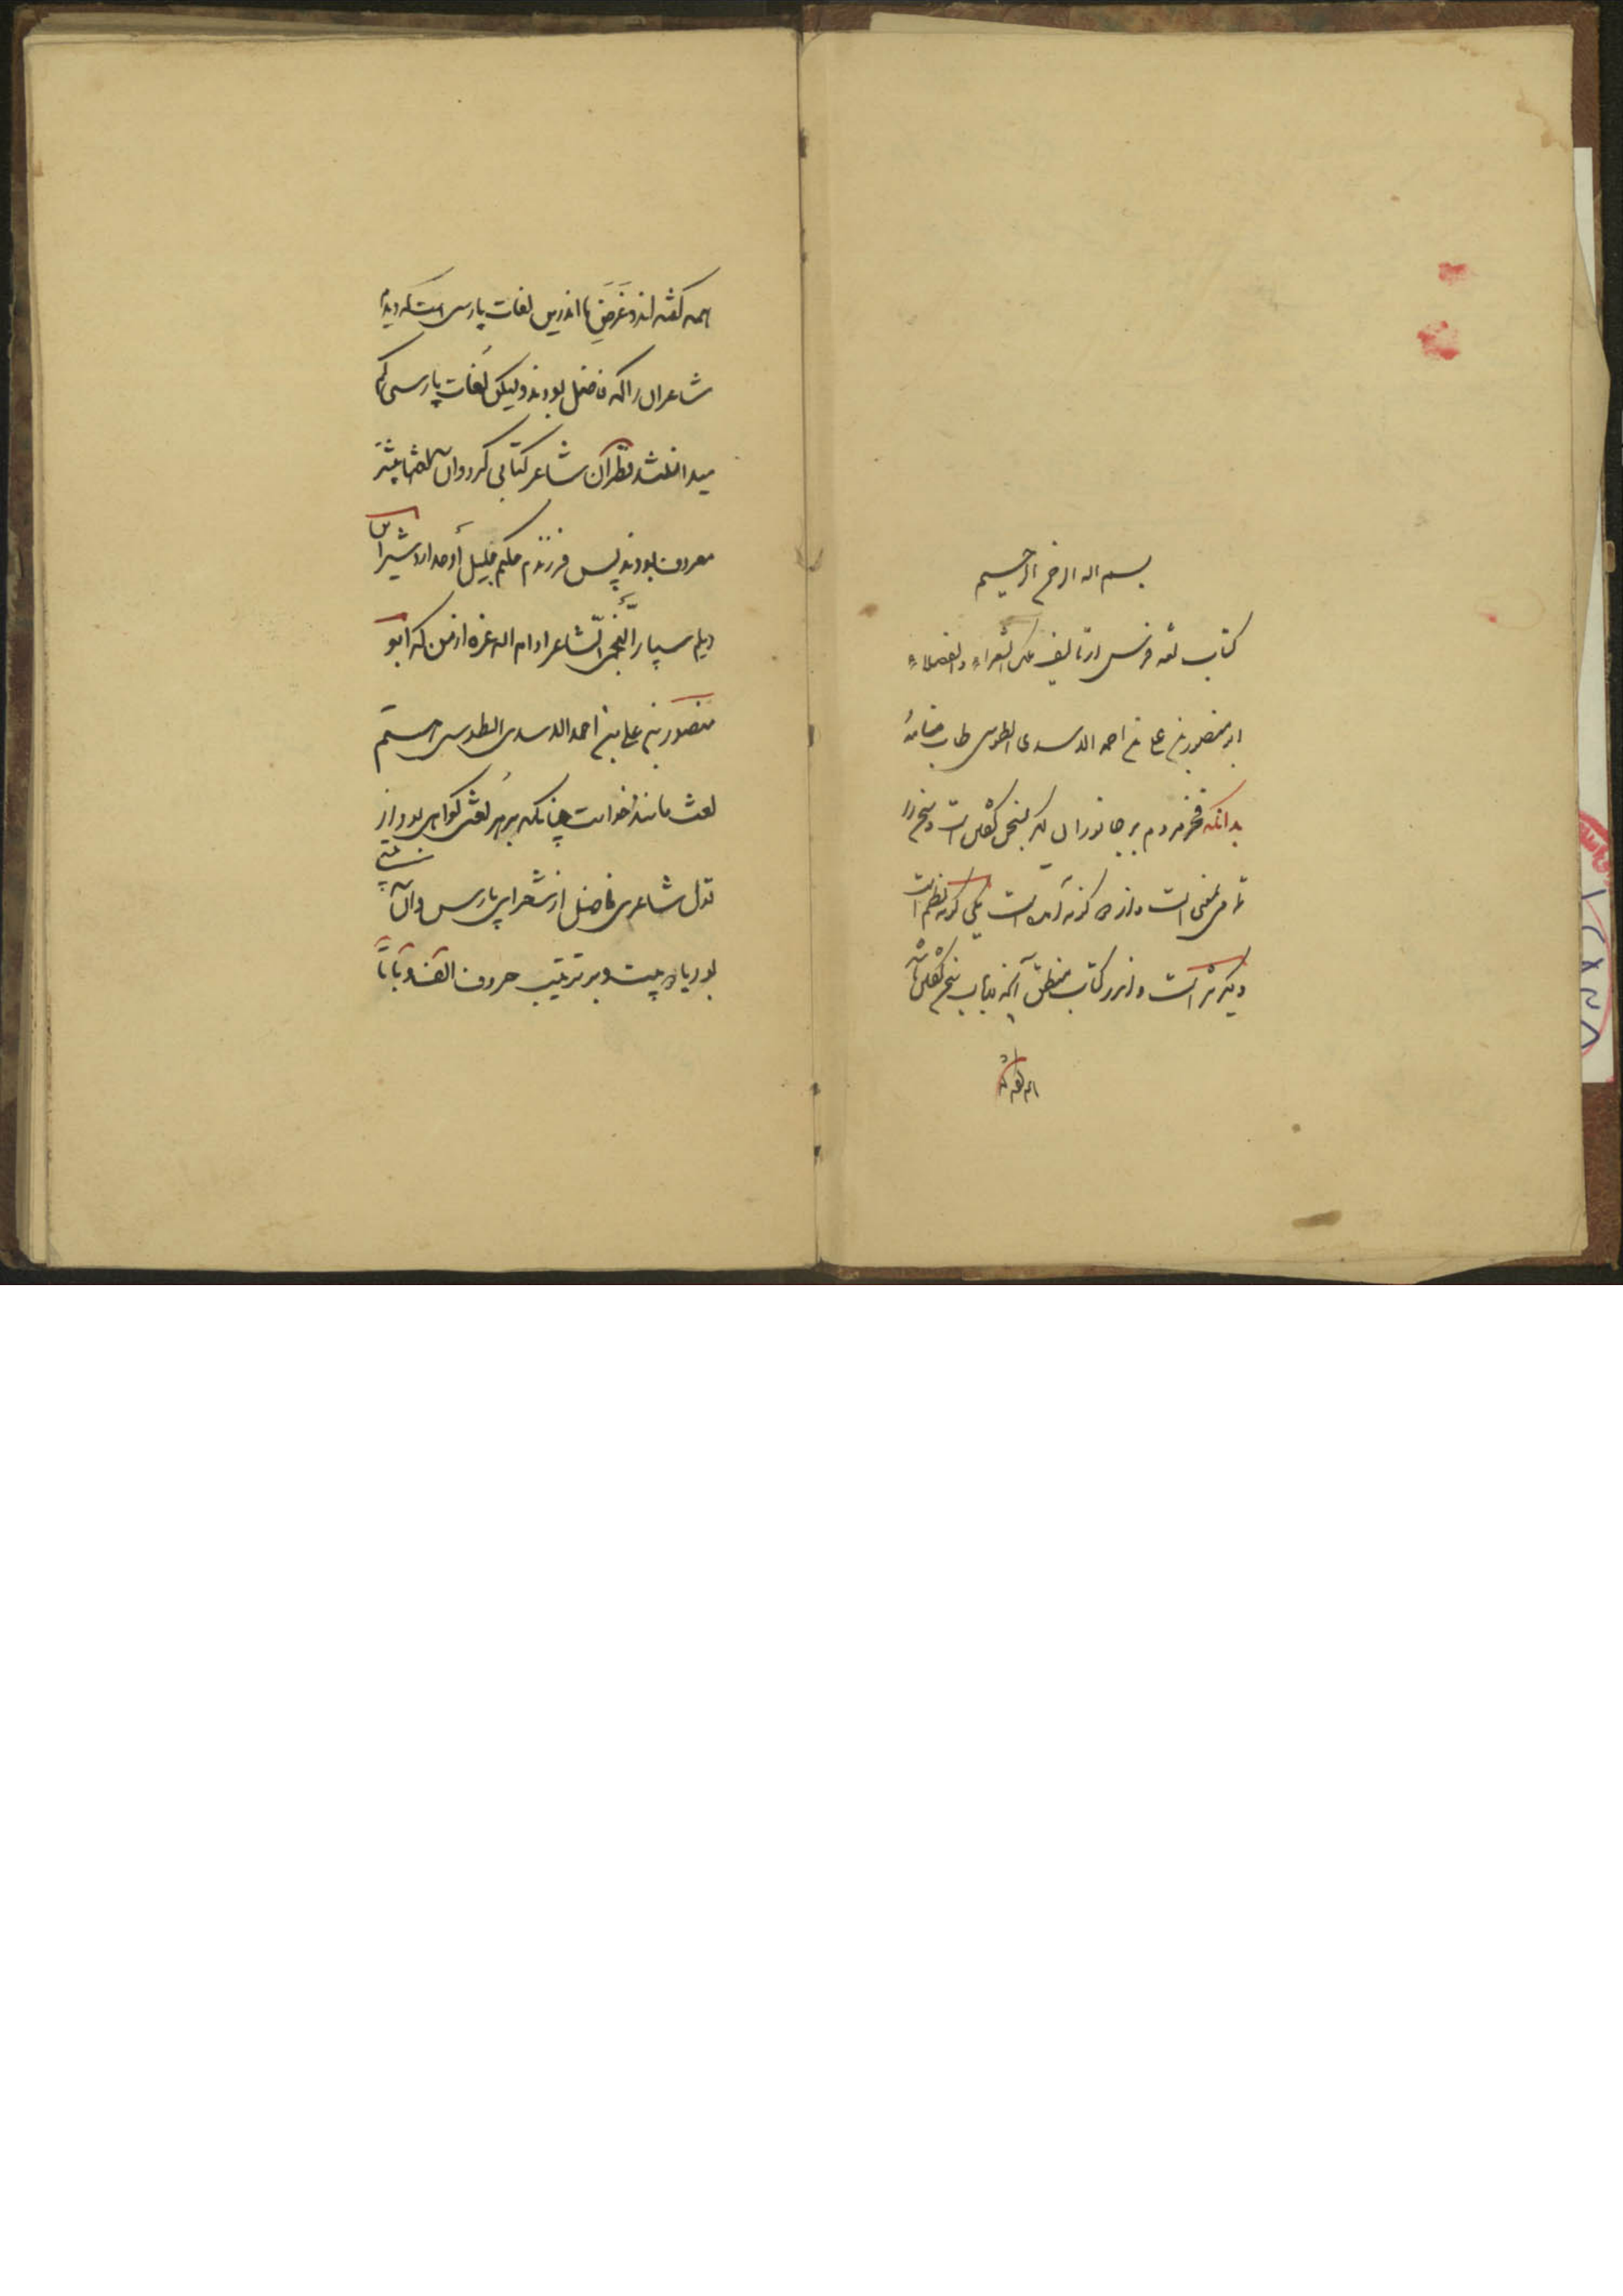 بسم اله الرحمن الرحیم
کتاب لغه فرس از تالیف ملک الشعراء والفضلاء
ابو منصور بن علی بن احمد الاسدی الطوسی طاب جنانه
بدانکه فخر مردم بر جانوران دیگر بسخن گفتن است و سخن را
تمامی بمعنی است و از دو گونه آمده است یکی گونه نظم است
دیگر نثر است و اندر کتاب منطق آنچه بباب سخن گفتن باشد
همه گفته اند
همه گفته اند و غَرَض ما اندرین لغات پارسی است که دیدم
شاعران را که فاضل بودند ولیکن لُغات پارسی کم
میدانستند قطران شاعر کتابی کرد و آن لغتها بیشتر
معروف بودند پس فرزندم حکیم جلیل أوحد اردشیر بن
دیلم سپار النّجمیّ الشّاعر ادام اله عزه از من که ابو
منصور بن علی بن احمد الاسدی الطوسی هستم
لغت نامه خواست چنانکه بر هر لُغتی گواهی بود از
قول شاعری فاضل از شعرای پارسی و آن بیتی
بود یا دو بیت و بر ترتیب حروف الف و با تا